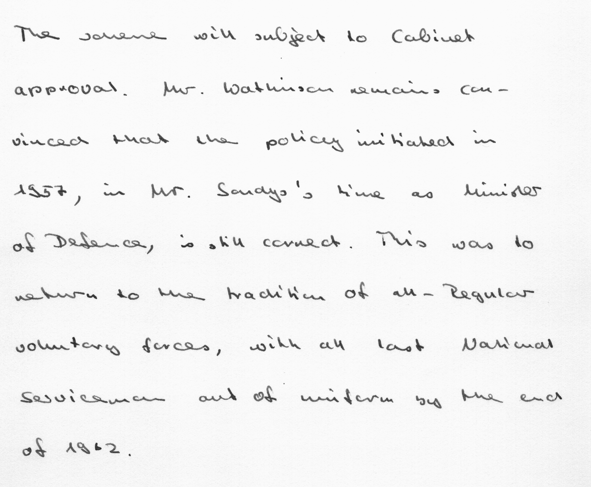 The scheme will subject to Cabinet
approval. Mr. Watkinson remains con-
vinced that the policy initiated in
1957, in Mr. Sandys's time as Minister
of Defence, is still correct. This was to
return to the tradition of all-Regular
voluntary forces, with all last National
Serviceman out of uniform by the end
of 1962.